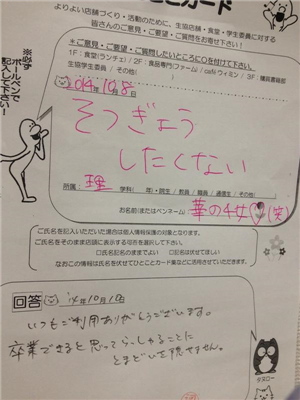 ことカード
よりよい店舗づくり・活動のために、生協店舗・食堂・学生委員に対する
皆さんのご意見・ご要望・ご質問をお寄せ下さい!
※必ず
ボールペンで
記入して下さい!
*ご意見・ご要望・ご質問したいところに○を付けて下さい。
1F:食堂(ランチェ) / 2F:食品専門(ファーム) / café ウィミン / 3F:購買書籍部
生協学生委員 / その他( )
'14年10月8
そつぎょう
したくない
所属: 理 学科( 年)・院生 / 教員 / 職員 / 通信生 / その他( )
お名前(またはペンネーム) 華の4女♡(笑)
ご氏名を記入いただいた場合は個人情報保護の対象となります。
ご氏名をそのまま店頭に表示する可否を選択して下さい。
□記名のままでよい □記名は伏せてほしい
なおこの情報は氏名を伏せてひとことカード集などに活用させていただきます。
回答
'14年10月10日
いつもご利用ありがとうございます。
卒業できると思ってらっしゃることに
とまどいを隠せません。
タズロー